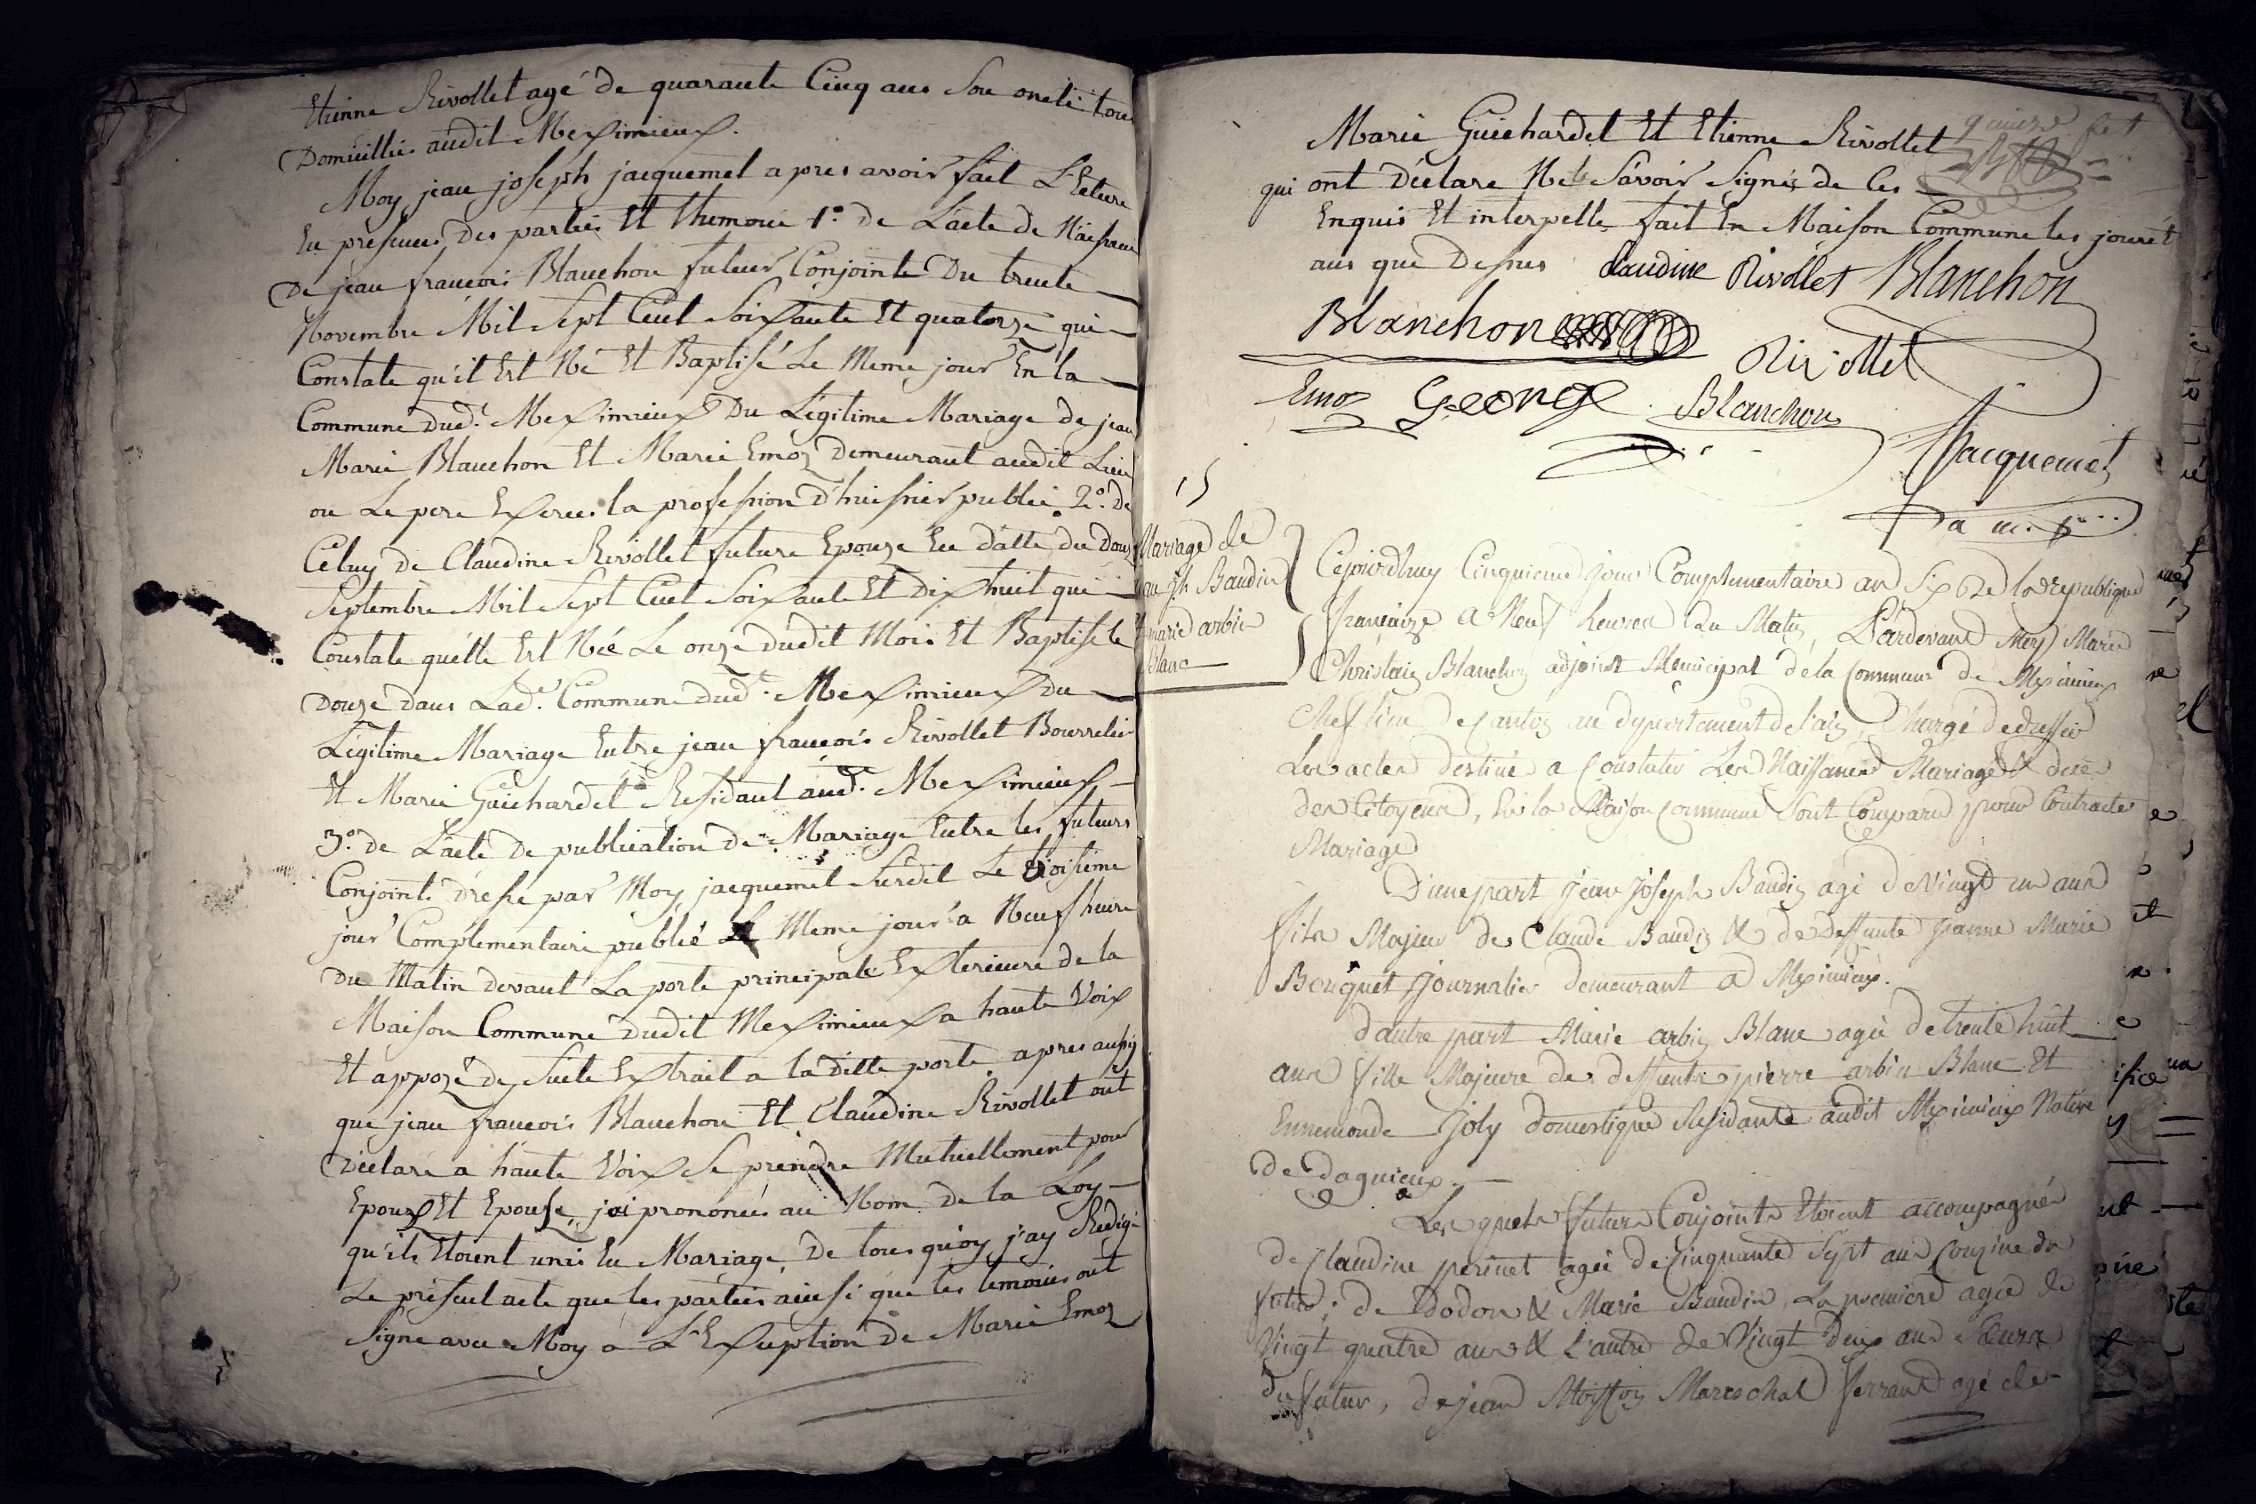 Etienne Rivollet agé de quarante Cinq ans Son oncle tous
Domicilliés audit Meximieux.
Moy jean joseph jacquemet apres avoir fait L'Ecture
En presence des parties Et themoins 1.° de L'acte de Naissance
De jean francois Blanchon futeur Conjointe Du trente
Novembre Mil Sept Cent Soixante Et quatorze qui
Constate qu'il Est Né Et Baptisé Le Meme jour En la
Commune dud.t Meximieux Du Légitime Mariage de jean
Marie Blanchon Et Marie Emoz Demeurant audit Lieu
ou Le pere Exerce la profession d'huissier public 2.° de
Celuy de Claudine Rivollet future Epouze En datte du douze
Septembre Mil Sept Cent Soixante Et Dixhuit qui
Constate quélle Est Née Le onze dudit Mois Et Baptisé le
Douze dans Lad.e Commune dud.t Meximieux Du
Légitime Mariage Entre jean francois Rivollet Bourrelier
Et Marie Guichardet Residant aud.t Meximieux
3.° de L'acte de publication de Mariage Entre les futeurs
Conjoints Dressé par Moy jacquemet Susdit Le troisieme
jour Complementaire publié Le Meme jour a Neuf heure
Du Matin devant La porte principale Exterieure de la
Maison Commune dudit Meximieux a haute Voix
Et appozé de Suite Extrait a la ditte porte apres aussy
que jean francois Blanchon Et Claudine Rivollet ont
Déclaré a haute Voix Se prendre Mutuellement pour
Epoux Et Epouse, jai prononcés au Nom de la Loy
qu'ils Etoient unis En Mariage De tous quoy j'ay Redigé
Le présent acte que les parties ainsi que les temoins ont
Signe avec Moy a L'Exseption de Marie Emoz
Marie Guichardet Et Etienne Rivollet
qui ont Déclare Ne Savoir Signés de Ces
Enquis Et interpelle, fait En Maison Commune les jour Et
ans que Dessus claudine Rivollet Blanchon
Blanchon
Rivollet
Emoz George Blanchon
Jacquemet
15
Mariage de
jean jph Baudin
marie arbin
blanc
Cejourdhuy Cinquieme jour Complementaire an Six de la republique
française a Neuf heures Du Matin, Pardevant Moy Marie
Christein Blanchon adjoint Municipal de la Commune de Meximieux
Chef lieu de canton au departement de l'ain, Chargé de dresser
Les actes destiné a Constater Les Naissances Mariages & deces
des Citoyens, En la Maison commune Sont Comparu pour Contracter
Mariage
D'une part jean joseph Baudin agé de Vingt un ans
fils Majeur de Claude Baudin & de deffunte jeanne Marie
Bouquet journalier demeurant a Meximieux.
dautre part Marie arbin Blanc agée de trente huit
ans fille Majeure de deffunts pierre arbin Blanc Et
Ennemonde Joly domestique Residante audit Meximieux Native
de dagnieux.
Lesquels futurs Conjoints Etoient accompagnés
de Claudine perinet agée de Cinquante Sept ans Couzine du
futur; de Dodon & Marie Baudin, La premiere agée de
Vingt quatre ans & L'autre de Vingt deux ans Sœurs
du futur, de jean Moisson Marechal ferrant agé de